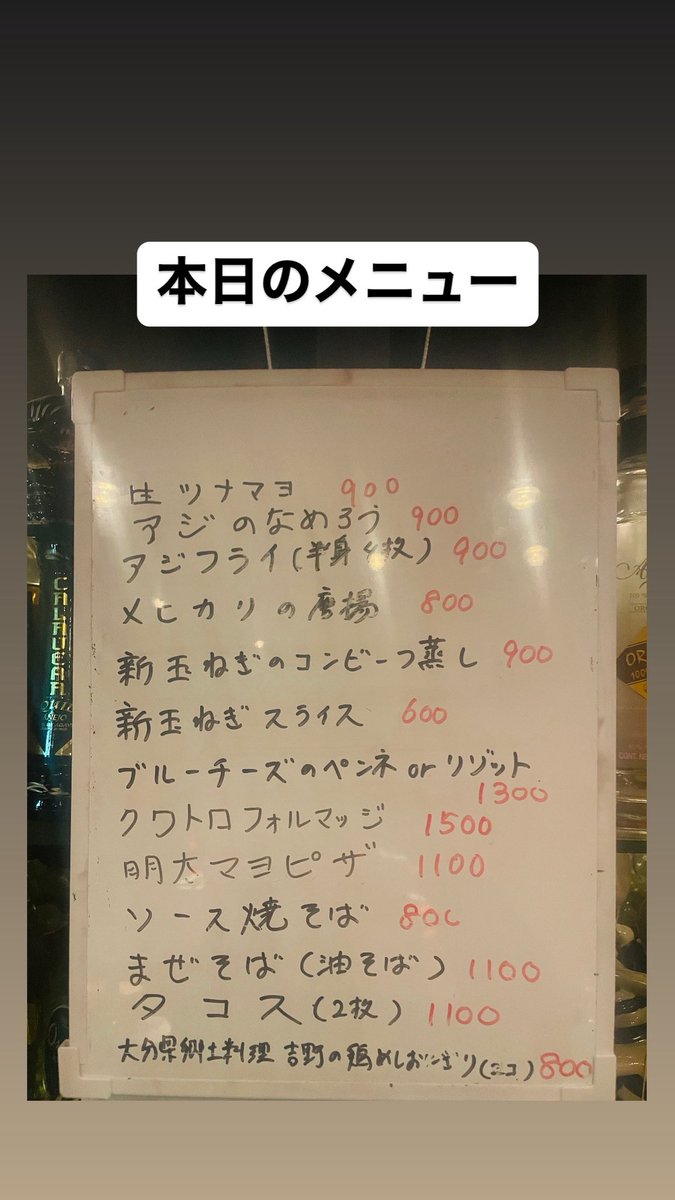 本日のメニュー
生ツナマヨ 900
アジのなめろう 900
アジフライ(半身4枚) 900
メヒカリの唐揚 800
新玉ねぎのコンビーフ蒸し 900
新玉ねぎスライス 600
ブルーチーズのペンネorリゾット
1300
クワトロフォルマッジ 1500
明太マヨピザ 1100
ソース焼そば 800
まぜそば(油そば) 1100
タコス(2枚) 1100
大分県郷土料理 吉野の鶏めしおにぎり(2コ) 800
CALAVERA
AÑEJO
OR
100%
CONT. NE